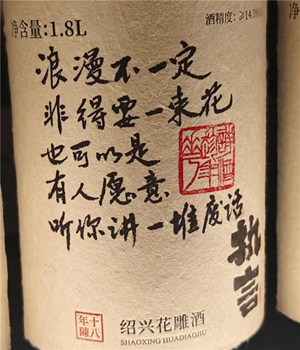 净含量:1.8L
酒精度:≥14.0%
浪漫不一定
非得要一束花
也可以是
有人愿意
听你讲一堆废话
执言
十八
年陳
绍兴花雕酒
SHAOXING HUADIAOJIU